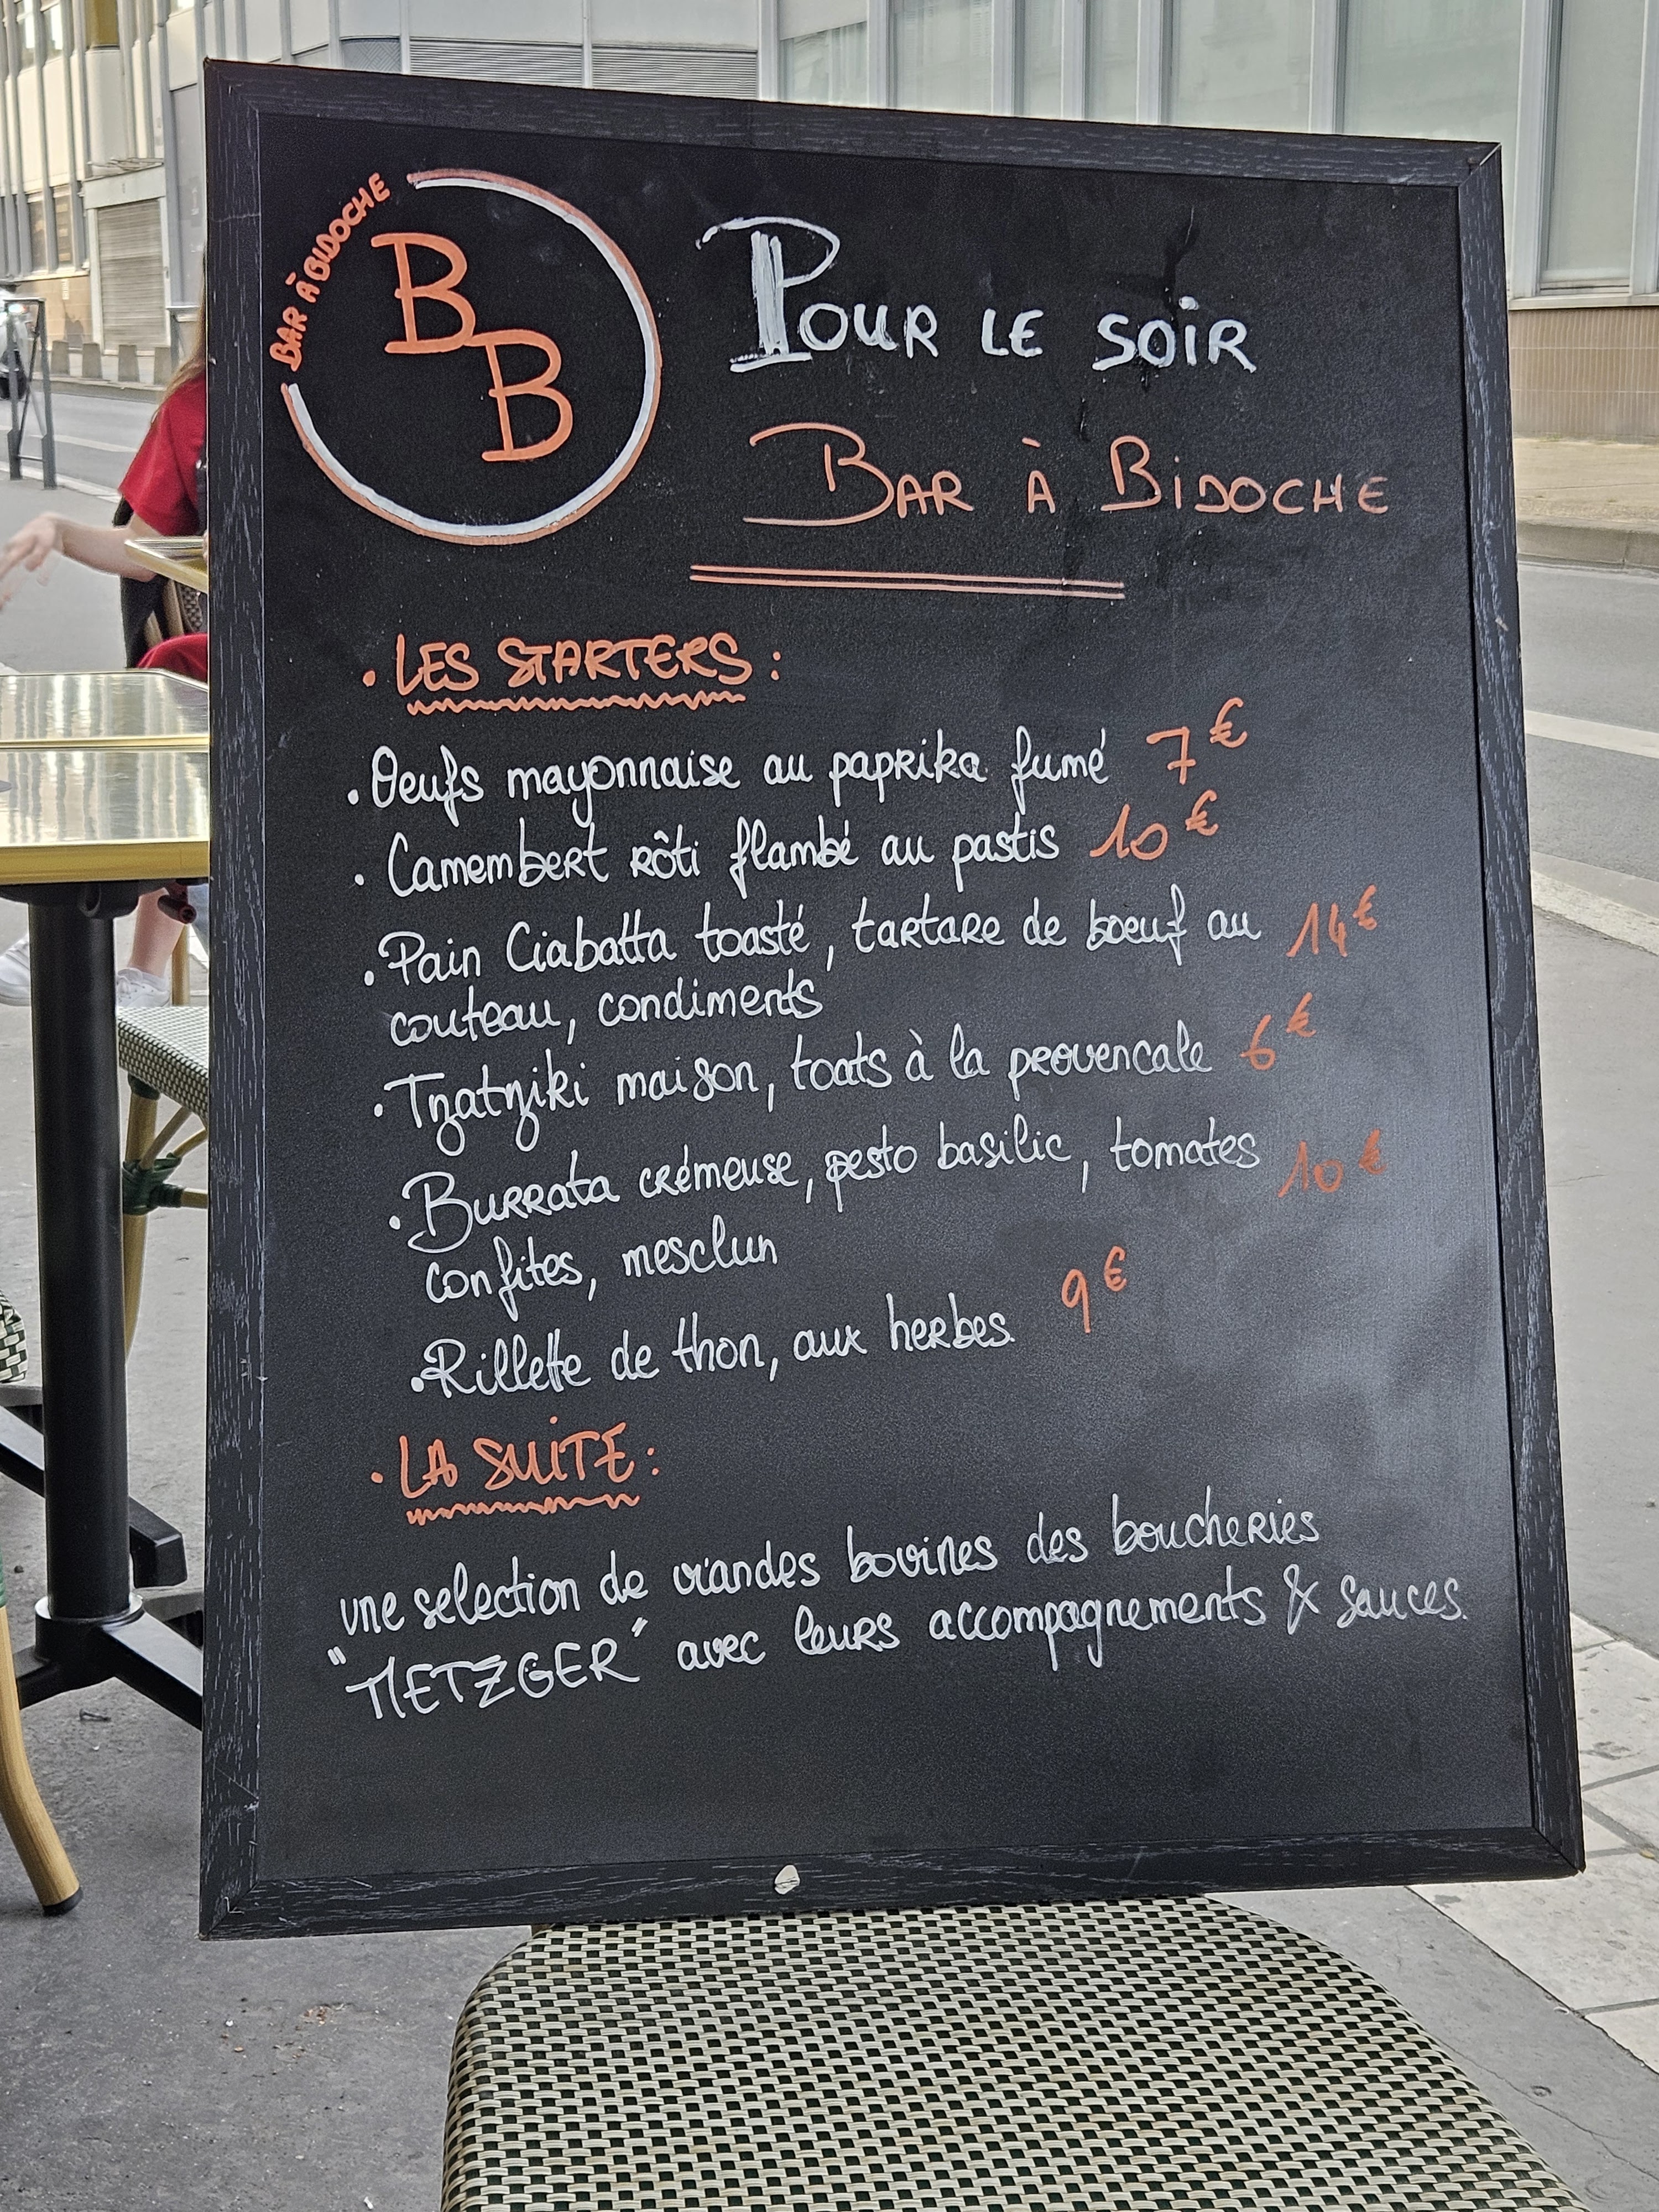 BAR À BIDOCHE
BB
POUR LE SOIR
BAR À BIDOCHE
• LES STARTERS :
• Oeufs mayonnaise au paprika fumé 7€
• Camembert rôti flambé au pastis 10€
• Pain Ciabatta toasté, tartare de boeuf au 14€
couteau, condiments
• Tzatziki maison, toats à la provencale 6€
• Burrata crémeuse, pesto basilic, tomates 10€
confites, mesclun
• Rillette de thon, aux herbes. 9€
• LA SUITE :
une selection de viandes bovines des boucheries
"METZGER" avec leurs accompagnements & sauces.